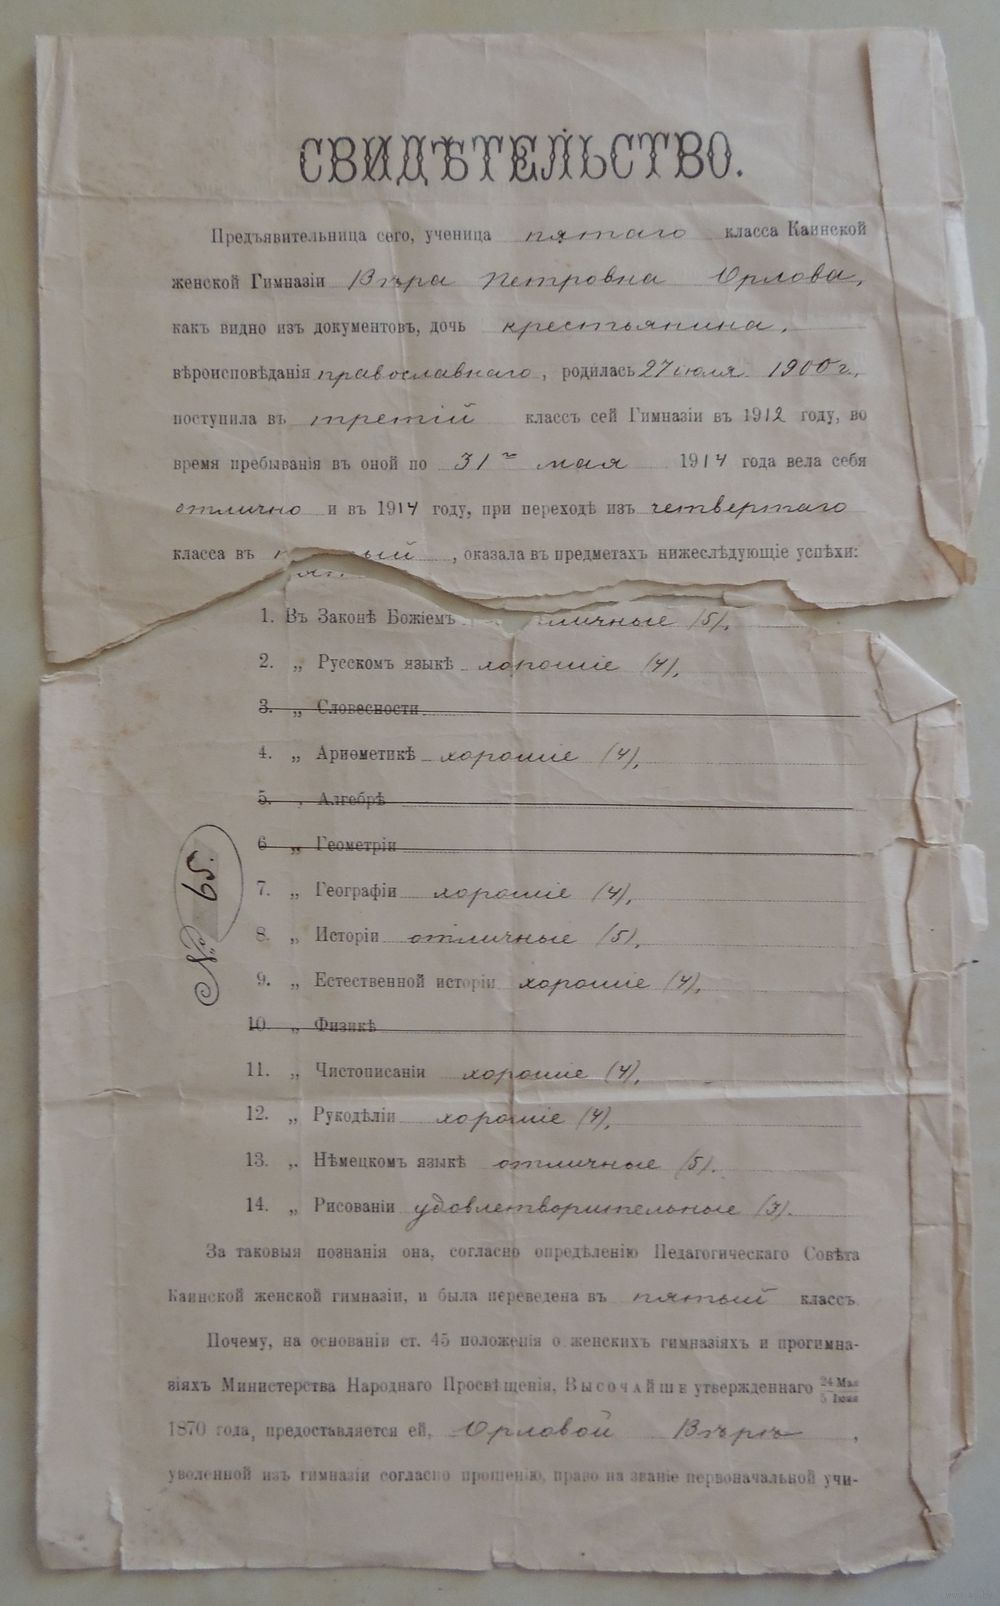 СВИДѢТЕЛЬСТВО.
Предъявительница сего, ученица пятаго класса Каинской
женской Гимназіи Вѣра Петровна Орлова,
какъ видно изъ документовъ, дочь крестьянина,
вѣроисповѣданія православнаго, родилась 27 іюля 1900 г.,
поступила въ третій классъ сей Гимназіи въ 1912 году, во
время пребыванія въ оной по 31 мая 1914 года вела себя
отлично и въ 1914 году, при переходѣ изъ четвертаго
класса въ пятый, оказала въ предметахъ нижеслѣдующіе успѣхи:
1. Въ Законѣ Божіемъ отличные (5),
2. „ Русскомъ языкѣ хорошіе (4),
3. „ Словесности
4. „ Ариѳметикѣ хорошіе (4),
5. „ Алгебрѣ
6 „ Геометріи
7. „ Географіи хорошіе (4),
8. „ Исторіи отличные (5),
9. „ Естественной исторіи хорошіе (4),
10. „ Физикѣ
11. „ Чистописаніи хорошіе (4),
12. „ Рукодѣліи хорошіе (4),
13. „ Нѣмецкомъ языкѣ отличные (5).
14. „ Рисованіи удовлетворительные (3).
№ 65.
За таковыя познанія она, согласно опредѣленію Педагогическаго Совѣта
Каинской женской гимназіи, и была переведена въ пятый классъ
Почему, на основаніи ст. 45 положенія о женскихъ гимназіяхъ и прогимна-
зіяхъ Министерства Народнаго Просвѣщенія, ВЫСОЧАЙШЕ утвержденнаго 24 Мая
5 Іюня
1870 года, предоставляется ей, Орловой Вѣрѣ,
уволенной изъ гимназіи согласно прошенію, право на званіе первоначальной учи-